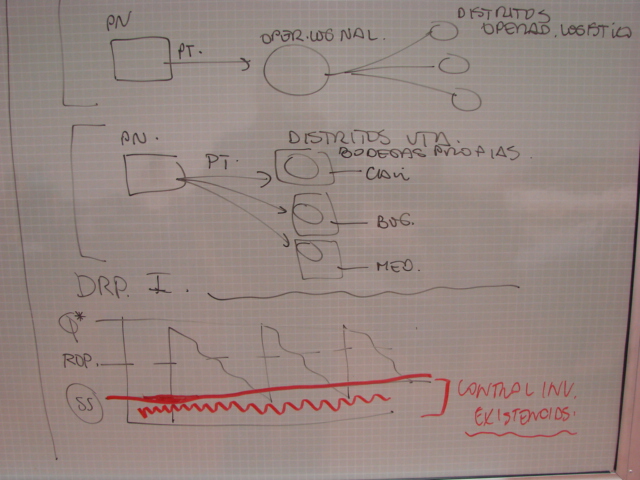 PN
PT.
OPER. LOG NAL.
DISTRITOS
OPERAD. LOGISTICO
PN.
PT.
DISTRITOS VTA.
BODEGAS PROPIAS.
CALI
BOG.
MED.
DRP. I.
Q*
ROP.
SS
CONTROL INV.
EXISTENCIAS.